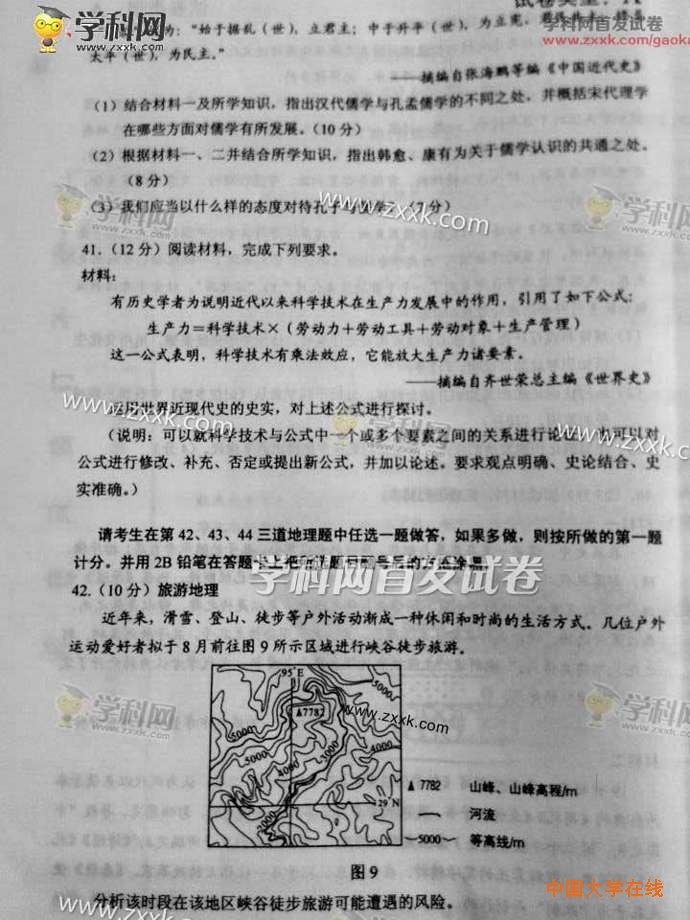 学科网
www.zxxk.com
学科网首发试卷
www.zxxk.com/gaoka
为："始于据乱（世），立君主；中于升平（世），为立宪，君
太平（世），为民主。"
——摘编自张海鹏等编《中国近代史》
（1）结合材料一及所学知识，指出汉代儒学与孔孟儒学的不同之处，并概括宋代理学
在哪些方面对儒学有所发展。（10 分）
（2）根据材料一、二并结合所学知识，指出韩愈、康有为关于儒学认识的共通之处。
（8 分）
（3）我们应当以什么样的态度对待孔子与儒学？（7 分）
41.（12 分）阅读材料，完成下列要求。
材料：
有历史学者为说明近代以来科学技术在生产力发展中的作用，引用了如下公式：
生产力＝科学技术×（劳动力＋劳动工具＋劳动对象＋生产管理）
这一公式表明，科学技术有乘法效应，它能放大生产力诸要素。
——摘编自齐世荣总主编《世界史》
运用世界近现代史的史实，对上述公式进行探讨。
（说明：可以就科学技术与公式中一个或多个要素之间的关系进行论证，也可以对
公式进行修改、补充、否定或提出新公式，并加以论述。要求观点明确、史论结合、史
实准确。）
请考生在第 42、43、44 三道地理题中任选一题做答，如果多做，则按所做的第一题
计分。并用 2B 铅笔在答题卡上把所选题目题号后的方框涂黑。
学科网首发试卷
42.（10 分）旅游地理
近年来，滑雪、登山、徒步等户外活动渐成一种休闲和时尚的生活方式。几位户外
运动爱好者拟于 8 月前往图 9 所示区域进行峡谷徒步旅游。
95°E
5000
▲7782
5000
4000
5000
4000
3000
29°N
2000
▲ 7782 山峰、山峰高程/m
河流
5000 等高线/m
图 9
分析该时段在该地区峡谷徒步旅游可能遭遇的风险。
中国大学在线